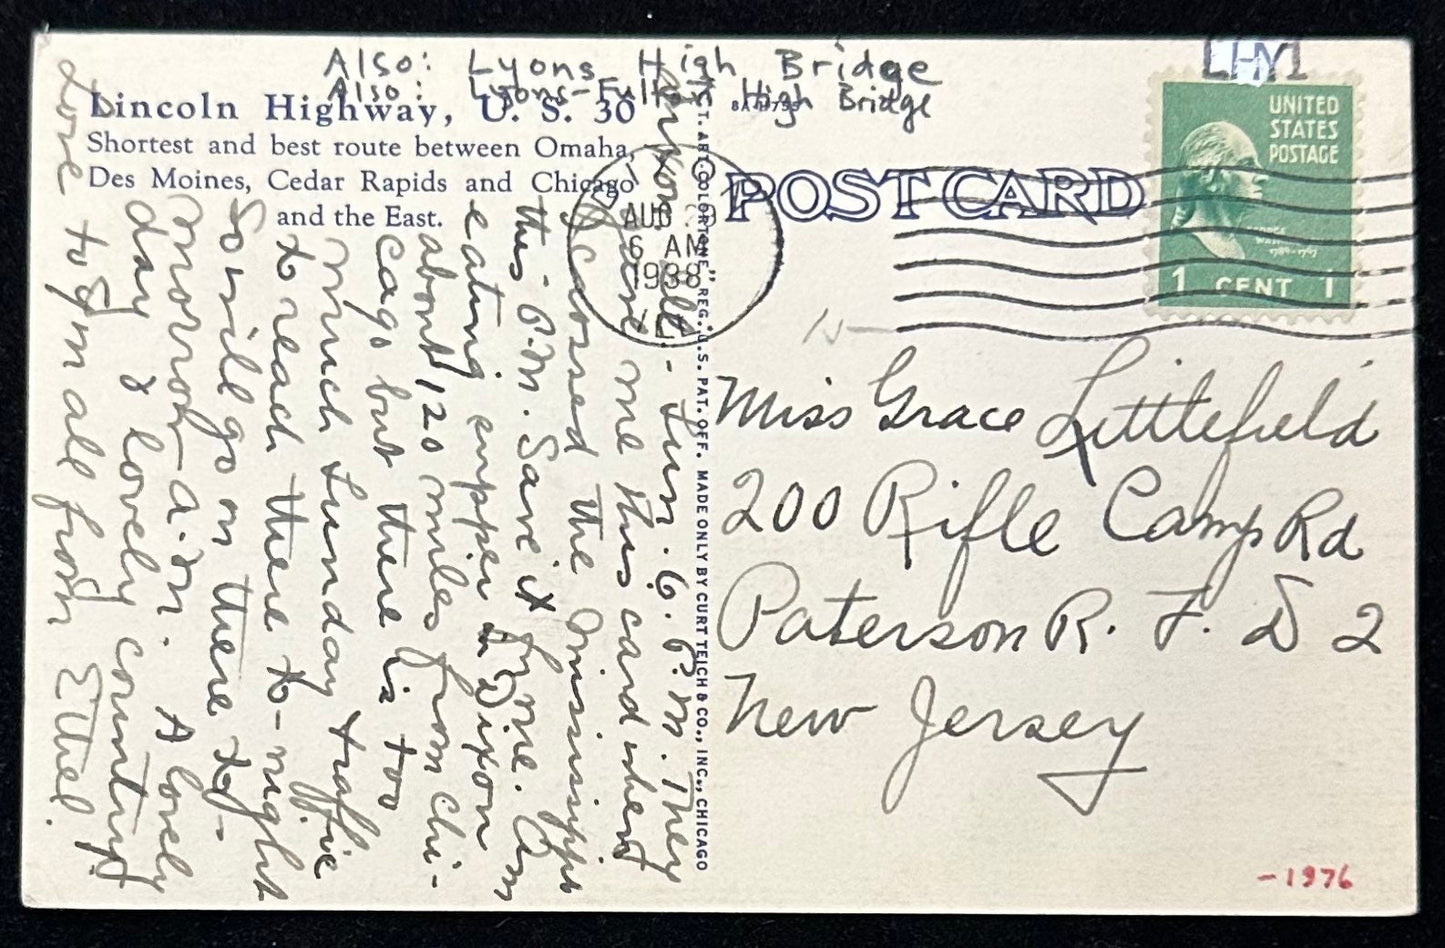 Also: Lyons High Bridge
Also: Lyons-Fulton High Bridge
LHY1
Lincoln Highway, U. S. 30
Shortest and best route between Omaha,
Des Moines, Cedar Rapids and Chicago
and the East.
POST CARD
UNITED
STATES
POSTAGE
1 CENT 1
AUG
6 AM
1938
ILL.
C. T. ART-COLORTONE" REG. U.S. PAT. OFF. MADE ONLY BY CURT TEICH & CO., INC., CHICAGO
Dixon Ill. - Sun. 6. P.M. They
gave me this card when
I crossed the Mississippi
this P.M. Save it for me. Am
eating supper in Dixon
about 120 miles from Chi-
cago but there is too
much Sunday traffic
to reach there to-night
so will go on there to-
morrow a.m. A lovely
day & lovely country!
Love to you all from Ethel.
Miss Grace Littlefield
200 Rifle Camp Rd
Paterson R. F. D 2
New Jersey
N
-1976